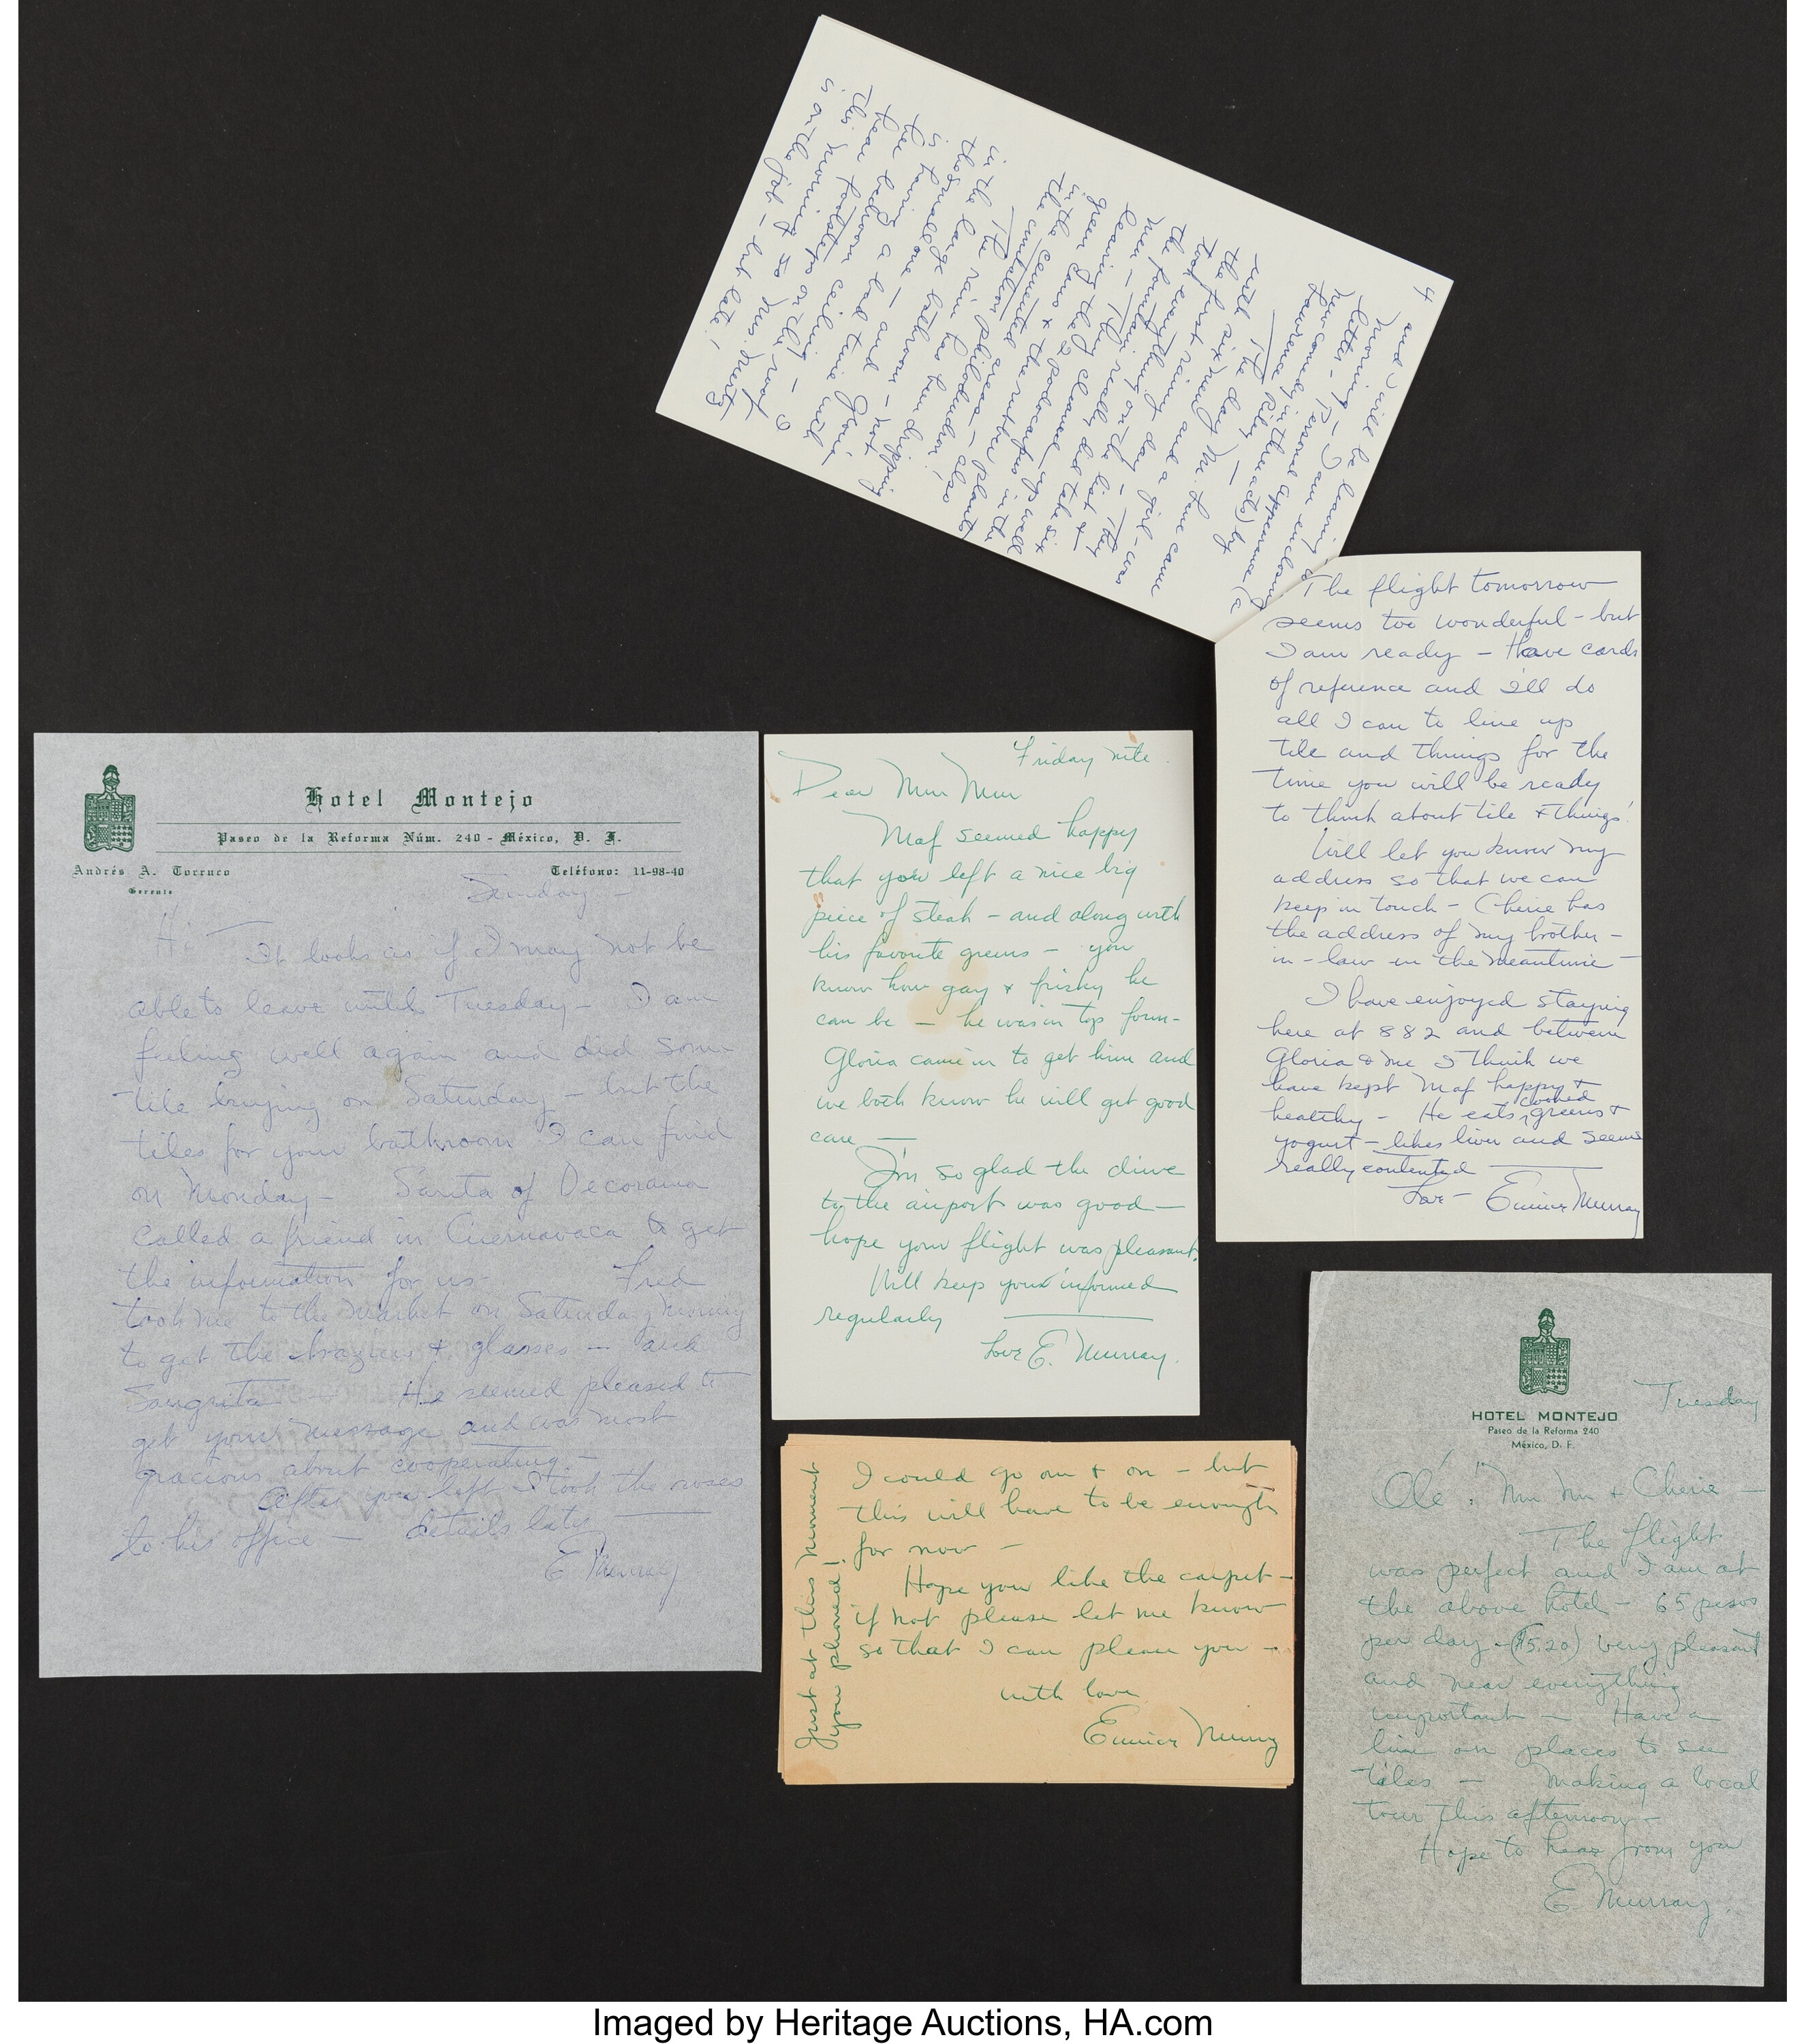 4
and I will be leaving in
morning - I am enclosing
letter - Personal appearance (a
new comedy in three acts) by
Lawrence Riley) -
The day Mr. came
with six men and a girl - was
the first rainy day - They
took everything on the list &
the fountain really did take six
men - They cleaned up well
leaning the 2 podocarpus in the
green cans & the rubber plants
in the cemented areas - also
the philodendron!
The rain has been dripping
in the large bathroom - not
the small one - and
is having a bad time with
her bedroom ceiling - I
hear footsteps on the roof
this morning so Mr. Muntz
is on the job - but late!
The flight tomorrow
seems too wonderful - but
I am ready - Have cards
of reference and I'll do
all I can to line up
tile and things for the
time you will be ready
to think about tile & things!
Will let you know my
address so that we can
keep in touch - Cherie has
the address of my brother -
in - law in the meantime -
I have enjoyed staying
here at 882 and between
Gloria & me I think we
have kept Maf happy &
healthy - He eats cooked greens &
yogurt - likes liver and seems
really contented
Love - Eunice Murray
Hotel Montejo
Paseo de la Reforma Núm. 240 - México, D. F.
Andrés A. Torruco
Gerente
Teléfono: 11-98-40
Sunday -
Hi
It looks as if I may not be
able to leave until Tuesday - I am
feeling well again and did some
tile buying on Saturday - but the
tiles for your bathroom I can find
on Monday - Sarita of Decorama
called a friend in Cuernavaca to get
the information for us - Fred
took me to the market on Saturday morning
to get the braziers & glasses - and
Sangrita - He seemed pleased to
get your message and was most
gracious about cooperating. -
After you left I took the roses
to his office - details later
E Murray
Friday nite.
Dear Mm Mm
Maf seemed happy
that you left a nice big
piece of steak - and along with
his favorite greens - you
know how gay & frisky he
can be - he was in top form -
Gloria came in to get him and
we both know he will get good
care -
I'm so glad the drive
to the airport was good -
hope your flight was pleasant.
Will keep you informed
regularly
Love E. Murray.
I could go on & on - but
this will have to be enough
for now -
Hope you like the carpet -
if not please let me know
so that I can please you -
with love
Eunice Murray
Just at this moment
you phoned!
HOTEL MONTEJO
Paseo de la Reforma 240
México, D. F.
Tuesday
Olé! Mm Mm & Cherie -
The flight
was perfect and I am at
the above hotel - 65 pesos
per day - ($5.20) very pleasant
and near everything
important - Have a
line on places to see
tiles - Making a local
tour this afternoon -
Hope to hear from you
E Murray.
Imaged by Heritage Auctions, HA.com